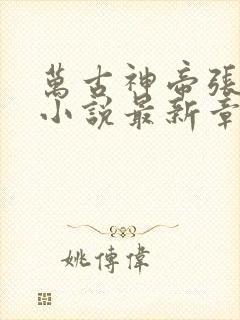 萬古神帝張
小說最新章
姚傳偉